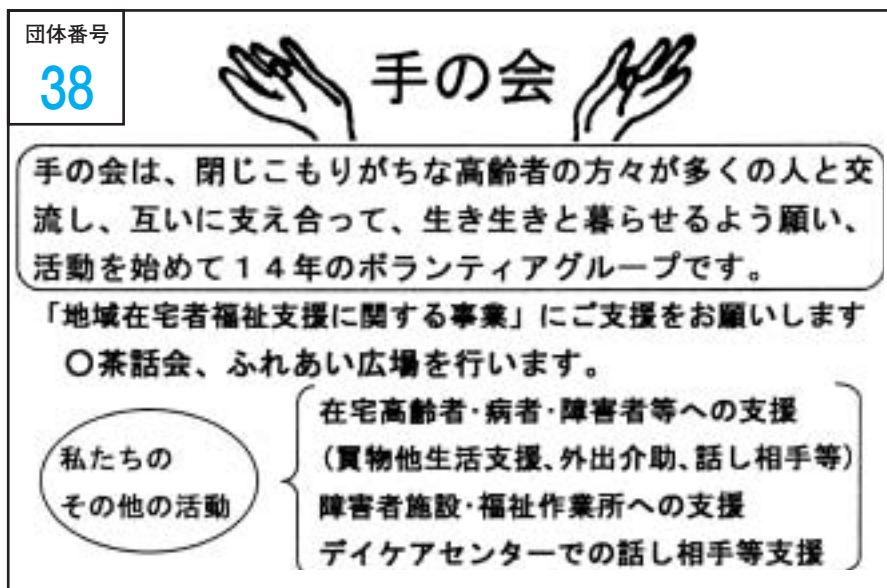 団体番号
38
手の会
手の会は、閉じこもりがちな高齢者の方々が多くの人と交
流し、互いに支え合って、生き生きと暮らせるよう願い、
活動を始めて１４年のボランティアグループです。
「地域在宅者福祉支援に関する事業」にご支援をお願いします
〇茶話会、ふれあい広場を行います。
私たちの
その他の活動
在宅高齢者･病者･障害者等への支援
（買物他生活支援、外出介助、話し相手等）
障害者施設･福祉作業所への支援
デイケアセンターでの話し相手等支援